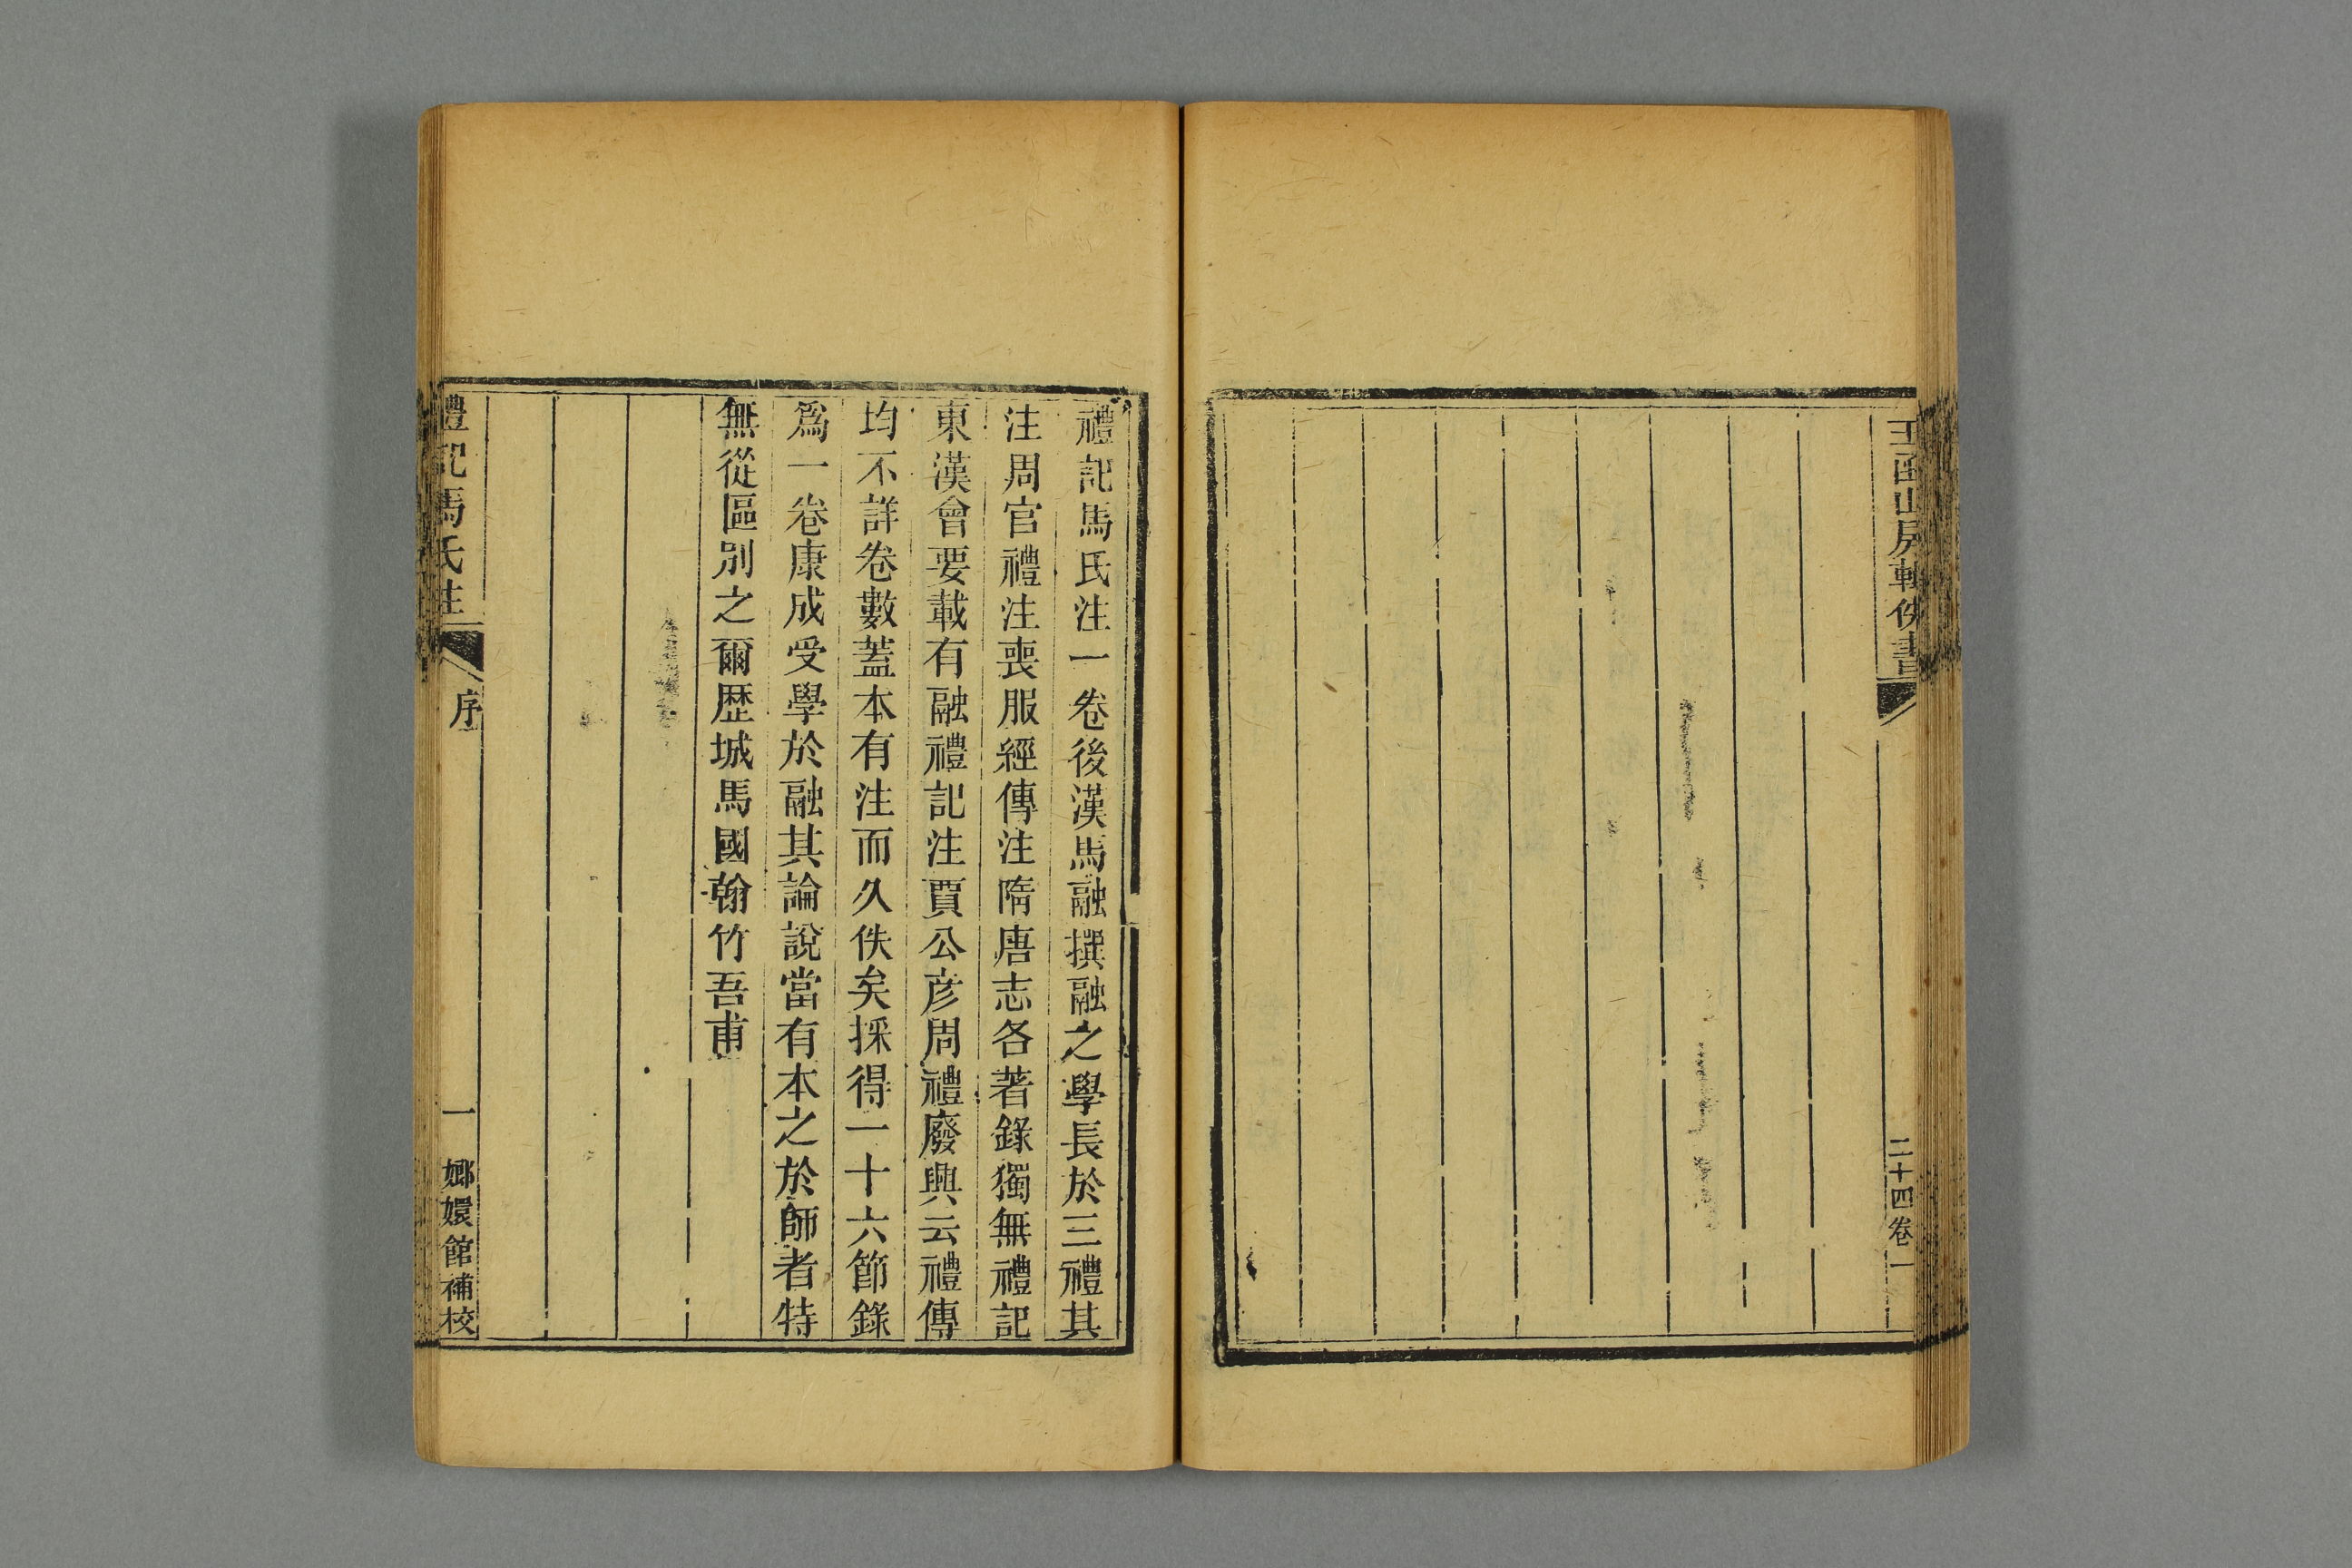 玉函山房輯佚書
二十四卷一
禮記馬氏注一卷後漢馬融撰融之學長於三禮其
注周官禮注喪服經傳注隋唐志各著錄獨無禮記
東漢會要載有融禮記注賈公彦周禮廢興云禮傳
均不詳卷數蓋本有注而久佚矣採得一十六節錄
爲一卷康成受學於融其論說當有本之於師者特
無從區别之爾歷城馬國翰竹吾甫
禮記馬氏注
序
一
嫏嬛館補校